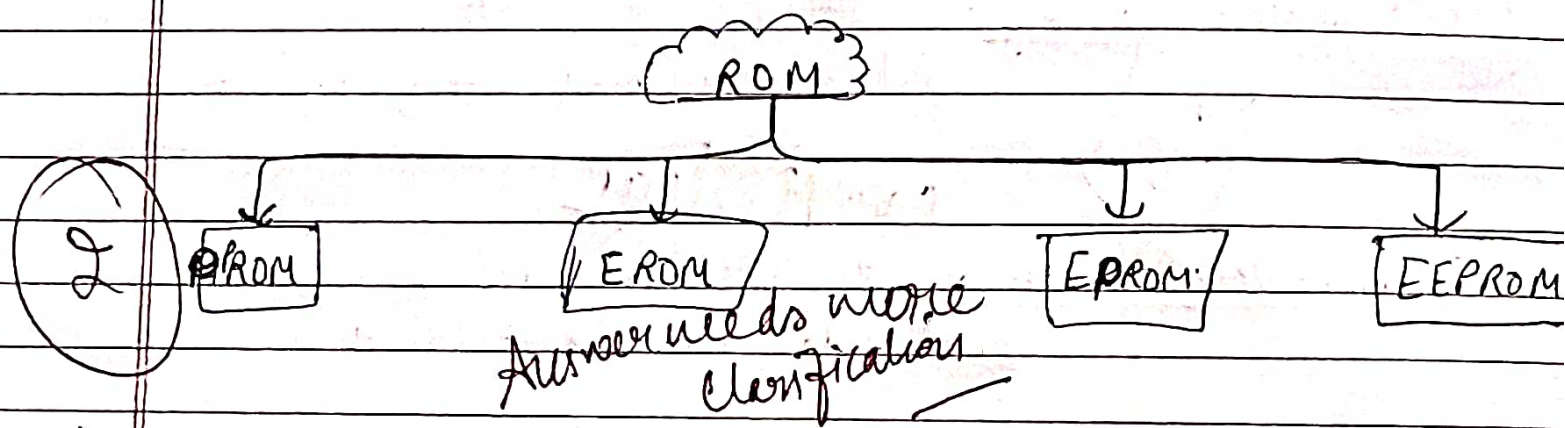 ROM
2
PROM EROM EPROM EEPROM
Answer needs more
clarification